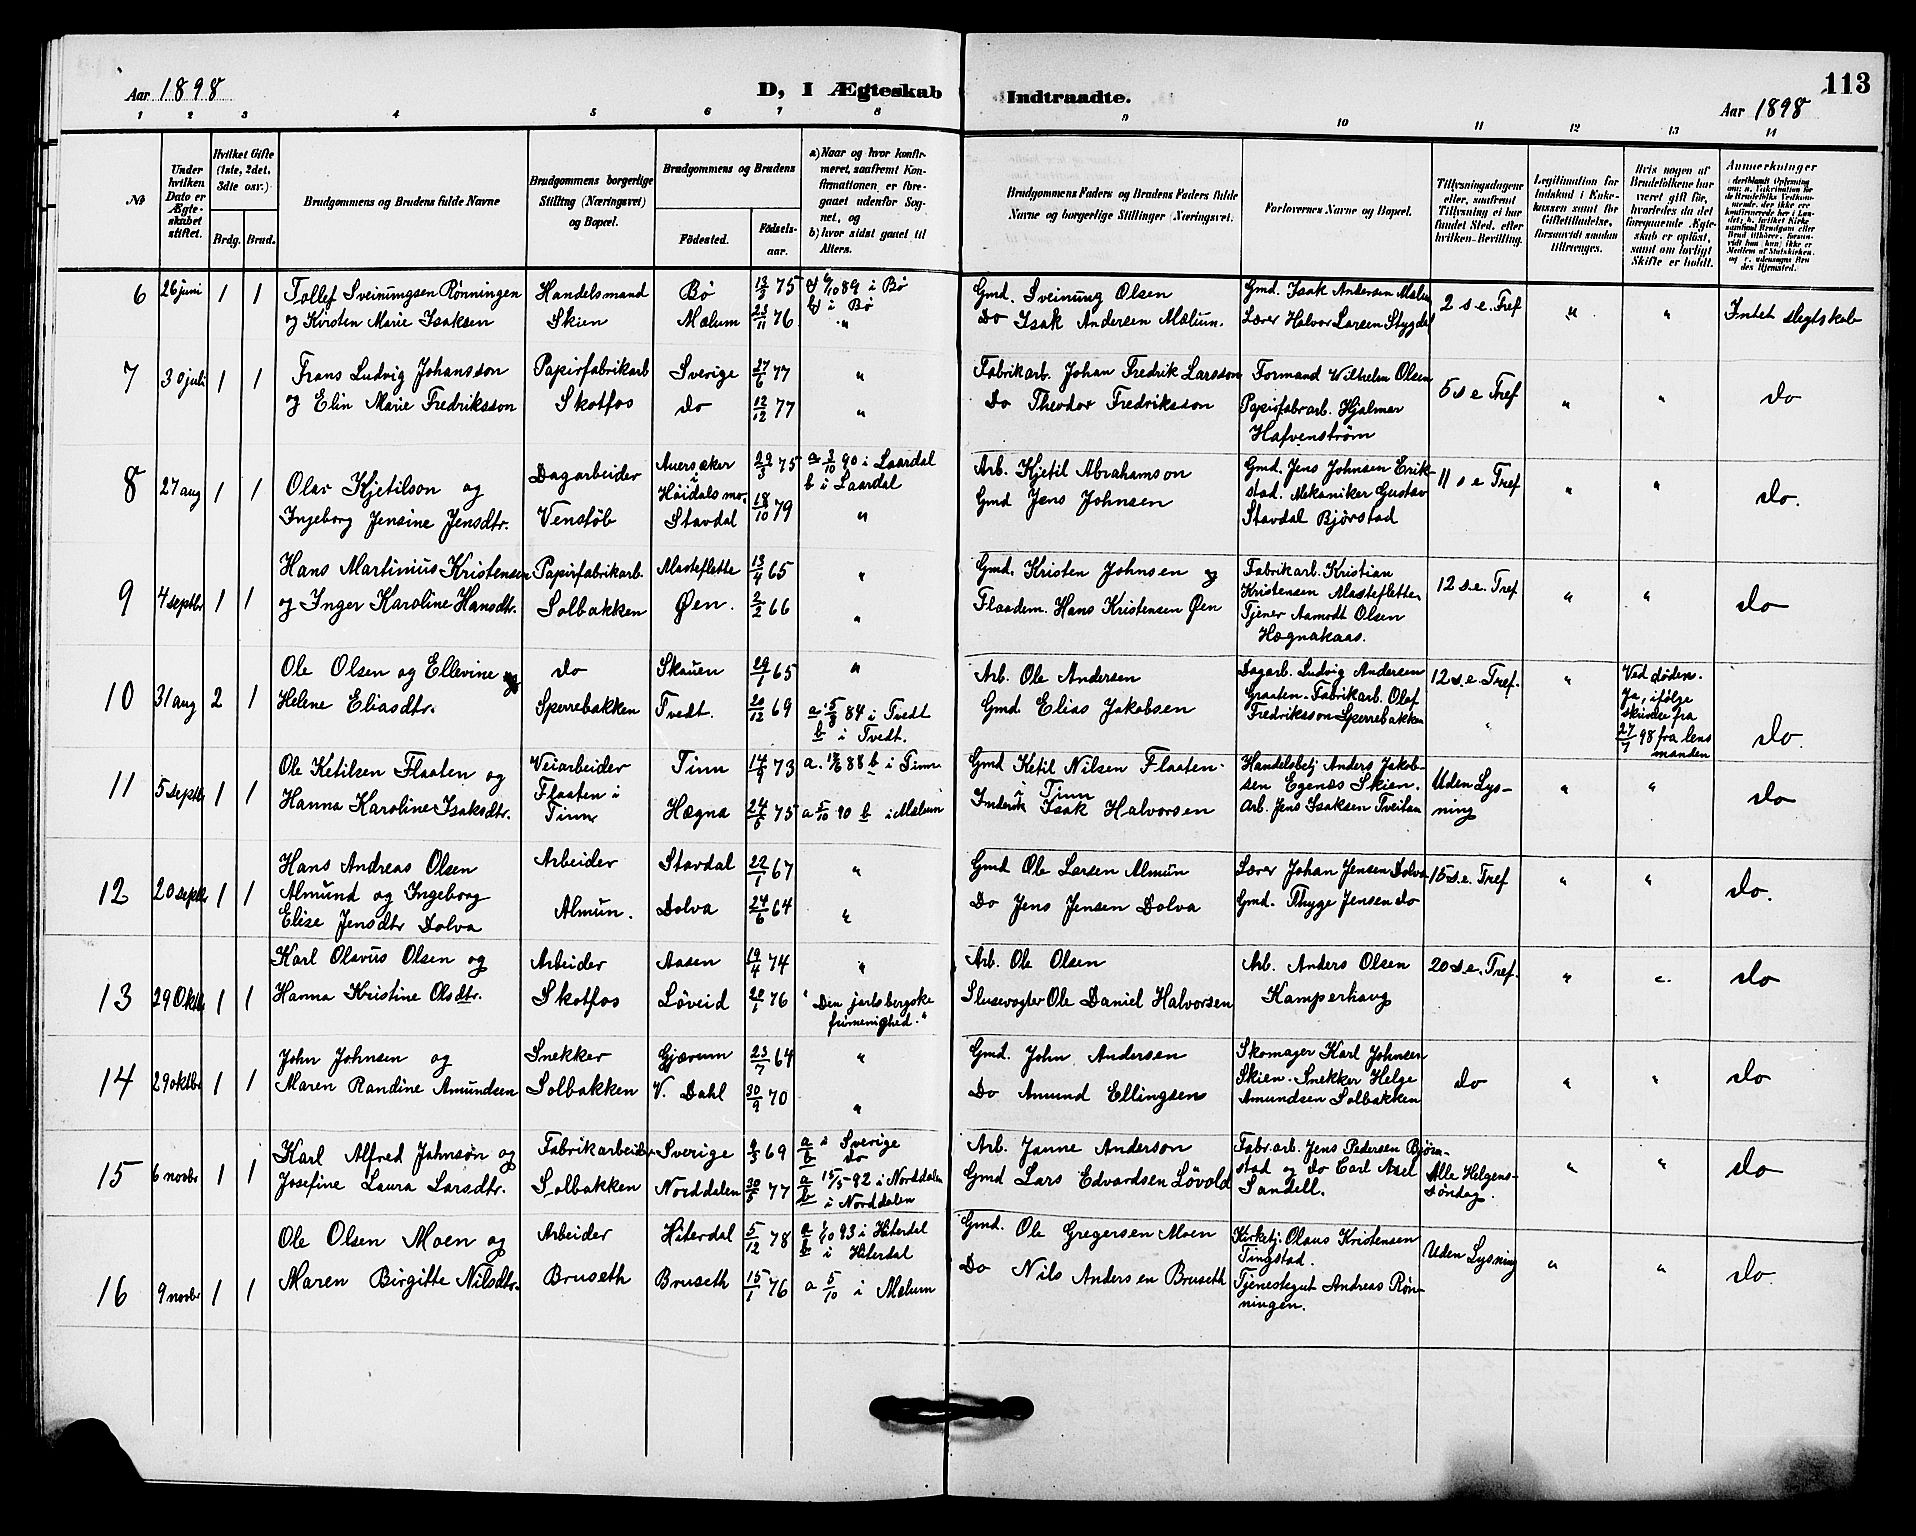 Aar 1898
D, I Ægteskab Indtraadte.
113
Aar 1898
1 2 3 4 5 6 7 8 9 10 11 12 13 14
No
Under hvilken Dato er Ægteskabet stiftet.
Hvilket Gifte (1ste, 2det, 3dte osv.)
Brdg. Brud.
Brudgommens og Brudens fulde Navne
Brudgommens borgerlige Stilling (Næringsvei) og Bopæl.
Brudgommens og Brudens
Fødested.
Fødselsaar.
a) Naar og hvor konfirmeret, saafremt Konfirmationen er foregaaet udenfor Sognet, og
b) hvor sidst gaaet til Alters.
Brudgommens Faders og Brudens Faders fulde Navne og borgerlige Stillinger (Næringsvei).
Forlovernes Navne og Bopæl.
Tillysningsdagene eller, saafremt Tillysning ei har fundet Sted, efter hvilken Bevilling.
Legitimation for Indskud i Enkekassen samt for Giftetilladelse, forsaavidt saadan tiltrænges.
Hvis nogen af Brudefolkene har været gift før, hvorledes da det foregaaende Ægteskab er opløst, samt om lovligt Skifte er holdt.
Anmerkninger
6 26 juni 1 1 Tollef Sveinungsen Rønningen Handelsmand Bø 13/3 75 a) 6/10 89 i Bø Gmd. Sveinung Olsen Gmd. Isak Andersen Mælum 2 s e. Tref " " Intet slegtskab
og Kirsten Marie Isaksen Skien Mælum 23/11 76 b) i Bø " Do Isak Andersen Mælum. Lærer Halvor Larsen Stygdal
7 30 juli 1 1 Frans Ludvig Johansson Papirfabrikarb Sverige 27/6 77 " Fabrikarb. Johan Fredrik Larsson Formand Wilhelm Olsen 5 s e Tref " " do
og Elin Marie Fredriksson Skotfos do 12/12 77 " Do Theodor Fredriksson Papirfabrarb. Hjalmar
Hafvenstrøm
8 27 aug 1 1 Olav Kjetilson og Dagarbeider Auersaker i Høidalsmo. 29/3 75 a 3/10 90 i Laardal Arb. Kjetil Abrahamson Gmd. Jens Johnsen Erik- 11 s e Tref " " do.
b i Laardal stad. Mekaniker Gustav
Ingeborg Jensine Jensdtr. Venstøb Stavdal 18/10 79 " Gmd Jens Johnsen Stavdal Bjørstad
9 4 septbr 1 1 Hans Martinius Kristensen Papirfabrikarb. Masteflette 13/4 65 " Gmd. Kristen Johnsen og Fabrikarb. Kristian 12 s.e. Tref " " do
Kristensen Mastefletten
og Inger Karoline Hansdtr. Solbakken Øen. 2/2 66 " Flaadem. Hans Kristensen Øen Tjener Aamodt Olsen
Hægnakaas.
10 31 aug 2 1 Ole Olsen og Ellevine do Skauen 29/1 65 " Arb. Ole Andersen Dagarb. Ludvig Andersen 12 s.e. Tref. " Ved døden. do.
Helene Eliasdtr. Sperrebakken Tvedt. 20/12 69 a 5/8 84 i Tvedt Gmd. Elias Jakobsen Graaten. Fabrikarb. Olaf " Ja, ifølge
b i Tvedt. Fredriksson Sperrebakken skrivelse fra
27/7 98 fra lens
manden
11 5 septbr 1 1 Ole Ketilsen Flaaten og Veiarbeider Tinn 14/9 73 88 b i Tinn Gmd Ketil Nilsen Flaaten. Handelsbetj Anders Jakob- Uden Lys- " " do
Flaaten i Tinn sen Egenæs Skien.
Hanna Karoline Isaksdtr. Tinn Hægna 24/5 75 a 5/10 90 b i Mælum Isak Halvorsen Arb. Jens Isaksen Tveitan ning
12 20 septbr 1 1 Hans Andreas Olsen Arbeider Stavdal 22/1 67 " Gmd Ole Larsen Almun Lærer Johan Jensen Dolva 15 s.e. Tref " " do.
Almund og Ingeborg
Elise Jensdtr Dolva Almun. Dolva 24/6 64 " Do Jens Jensen Dolva Gmd. Thyge Jensen do
13 29 Oktbr 1 1 Karl Olavus Olsen og Arbeider Aasen 19/4 74 " Arb. Ole Olsen Arb. Anders Olsen 20 s.e. Tref. " " do
Hanna Kristine Olsdtr. Skotfos Løveid 20/1 76 "Den jarlsbergske Slusevogter Ole Daniel Halvorsen Kamperhaug
frimenighed."
14 29 oktbr 1 1 John Johnsen og Snekker Gjærum 23/7 64 " Gmd. John Andersen Skomager Karl Johnsen do " " do
Skien. Snekker Helge
Maren Randine Amundsen Solbakken V. Dahl 30/9 70 " Do Amund Ellingsen Amundsen Solbakken
15 6 novbr 1 1 Karl Alfred Johnson og Fabrikarbeider Sverige 9/3 69 a i Sverige Arb. Janne Anderson Fabr.arb. Jens Pedersen Bjørn- Alle Helgens- " " do
b do stad og do Carl Axel
Josefine Laura Larsdtr. Solbakken Norddalen 30/5 77 a 15/5 92 i Norddalen Gmd Lars Edvardsen Løvold Sandell. søndag.
b i Norddalen
16 9 novbr 1 1 Ole Olsen Moen og Arbeider Hiterdal 5/12 78 a 1/10 93 i Hiterdal Gmd. Ole Gregersen Moen Kirketj. Olaus Kristensen Uden Lysning " " do.
b i Hiterdal Tingstad.
Maren Birgitte Nilsdtr. Bruseth Bruseth 15/1 76 a 5/10 i Mælum Do Nils Andersen Bruseth Tjenestegut Andreas Røn-
ningen.